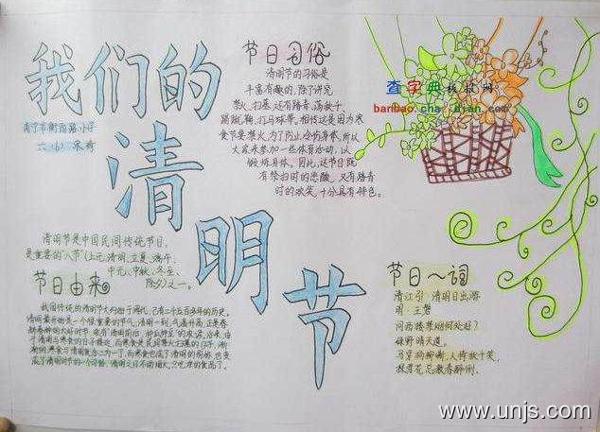 我们的
清
明
节
南宁市衡阳路小学
节日习俗
清明节的习俗是
丰富有趣的,除了讲究
禁火、扫墓,还有踏青、荡秋千、
蹴鞠、打马球等。相传这是因为寒
食节要禁火,为了防止冷食伤身,所以
大家来参加一些体育活动,以
锻炼身体。因此,这节日既
有祭扫时的悲酸,又有踏青
时的欢笑,十分具有特色。
查字典
banbao.cha
dian.com
清明节是中国民间传统节日,
是重要的“八节”(上元、清明、立夏、端午、
中元、中秋、冬至、
除夕)之一。
节日由来
我国传统的清明节大约始于周代,已有二千五百多年的历史。
清明最开始是一个很重要的节气,清明一到,气温升高,正是春
耕春种的大好时节,故有“清明前后,种瓜种豆”的农谚。后来,由于
清明与寒食的日子接近,而寒食是民间禁火扫墓的日子,渐
渐的,寒食与清明就合二为一了,而寒食也成了清明的别称,也变
成了清明时节的一个习俗,清明之日不动烟火,只吃凉的食品了。
节日~词
清江引·清明日出游
明·王磐
问西楼禁烟何处好?
绿野晴天道。
马穿杨柳嘶,人倚秋千笑,
探莺花总教春醉倒。
www.unjs.com